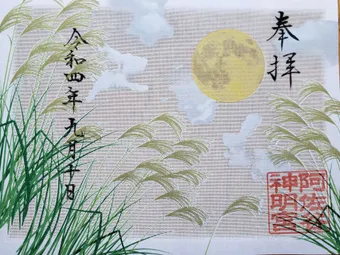 奉拝
令和四年九月十日
阿佐
神明宮